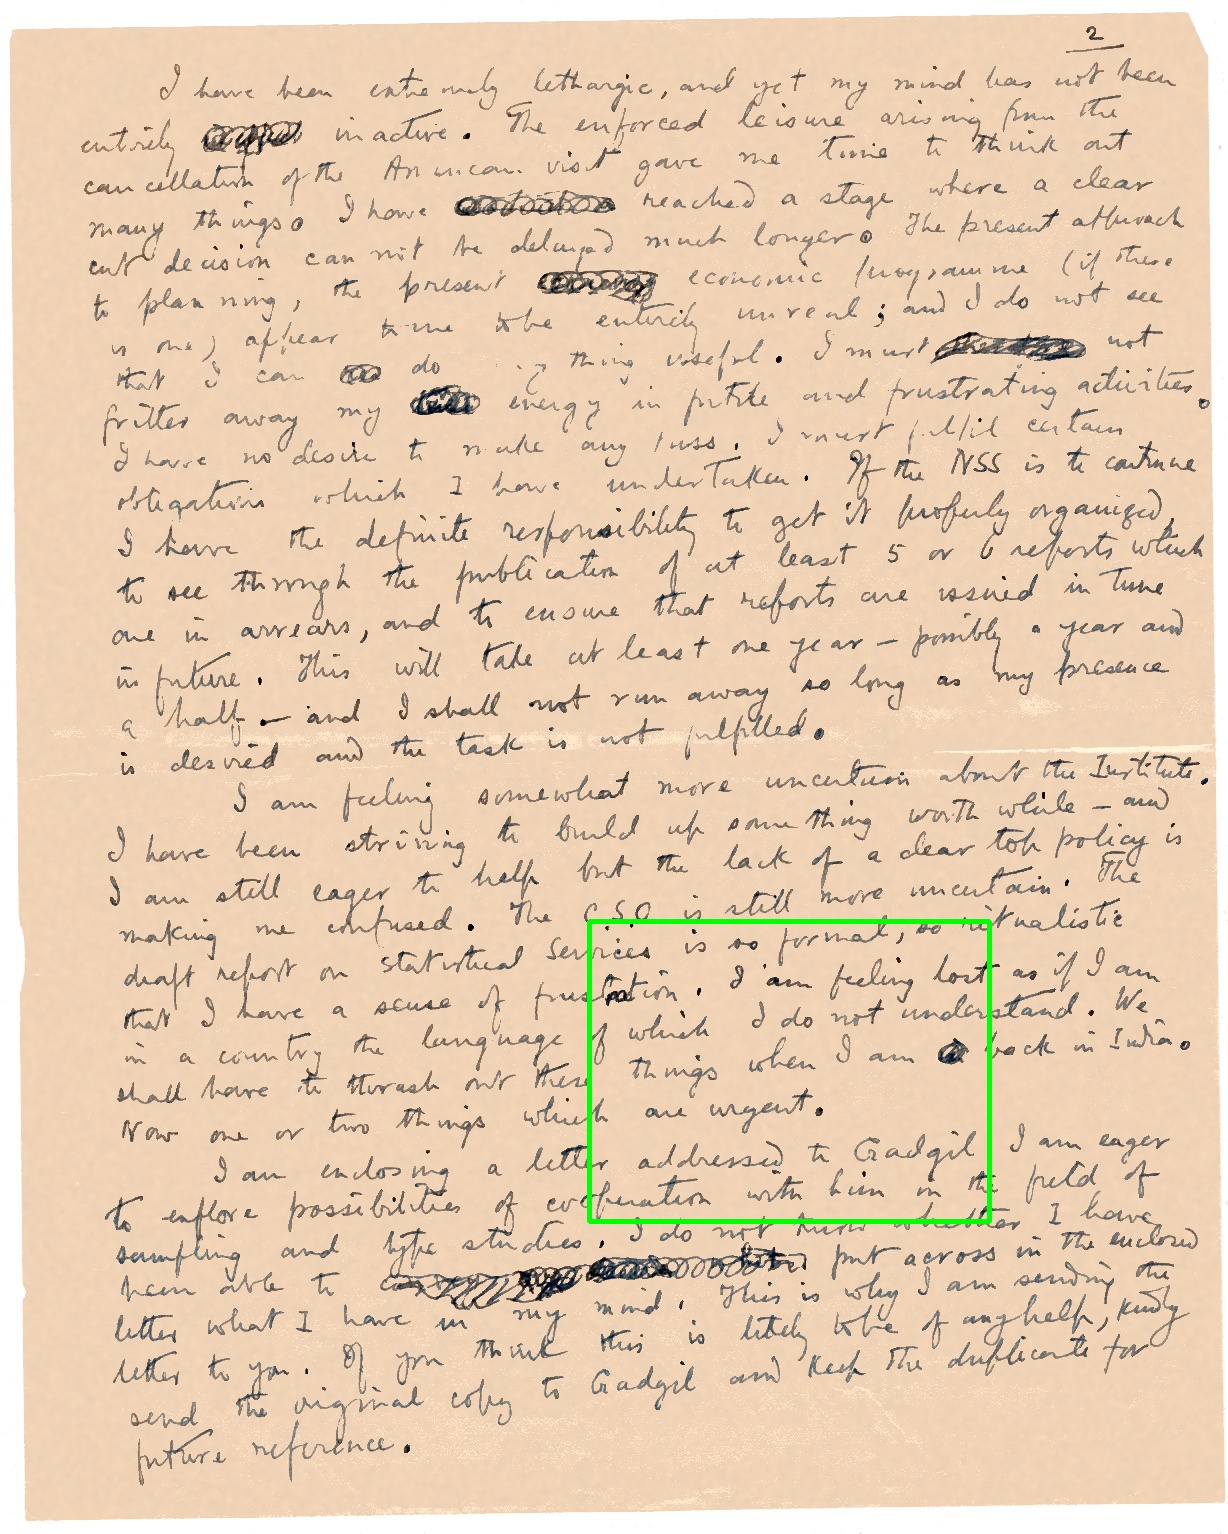 2
I have been extremely lethargic, and yet my mind has not been
entirely inactive. The enforced leisure arising from the
cancellation of the American visit gave me time to think out
many things. I have reached a stage where a clear
cut decision can not be delayed much longer. The present approach
to planning, the present economic programme (if there
is one) appear to me to be entirely unreal; and I do not see
that I can do thing useful. I must not
fritter away my energy in futile and frustrating activities.
I have no desire to make any fuss. I must fulfil certain
obligations which I have undertaken. If the NSS is to continue
I have the definite responsibility to get it properly organized,
to see through the publication of at least 5 or 6 reports which
are in arrears, and to ensure that reports are issued in time
in future. This will take at least one year — possibly a year and
a half — and I shall not run away so long as my presence
is desired and the task is not fulfilled.
I am feeling somewhat more uncertain about the Institute.
I have been striving to build up something worth while — and
I am still eager to help but the lack of a clear top policy is
making me confused. The CSO is still more uncertain. The
draft report on statistical services is so formal, so ritualistic
that I have a sense of frustration. I am feeling lost as if I am
in a country the language of which I do not understand. We
shall have to thrash out these things when I am back in India.
Now one or two things which are urgent.
I am enclosing a letter addressed to Gadgil I am eager
to explore possibilities of cooperation with him in the field of
sampling and type studies. I do not know whether I have
been able to put across in the enclosed
letter what I have in my mind. This is why I am sending the
letter to you. If you think this is likely to be of any help, kindly
send the original copy to Gadgil and keep the duplicate for
future reference.